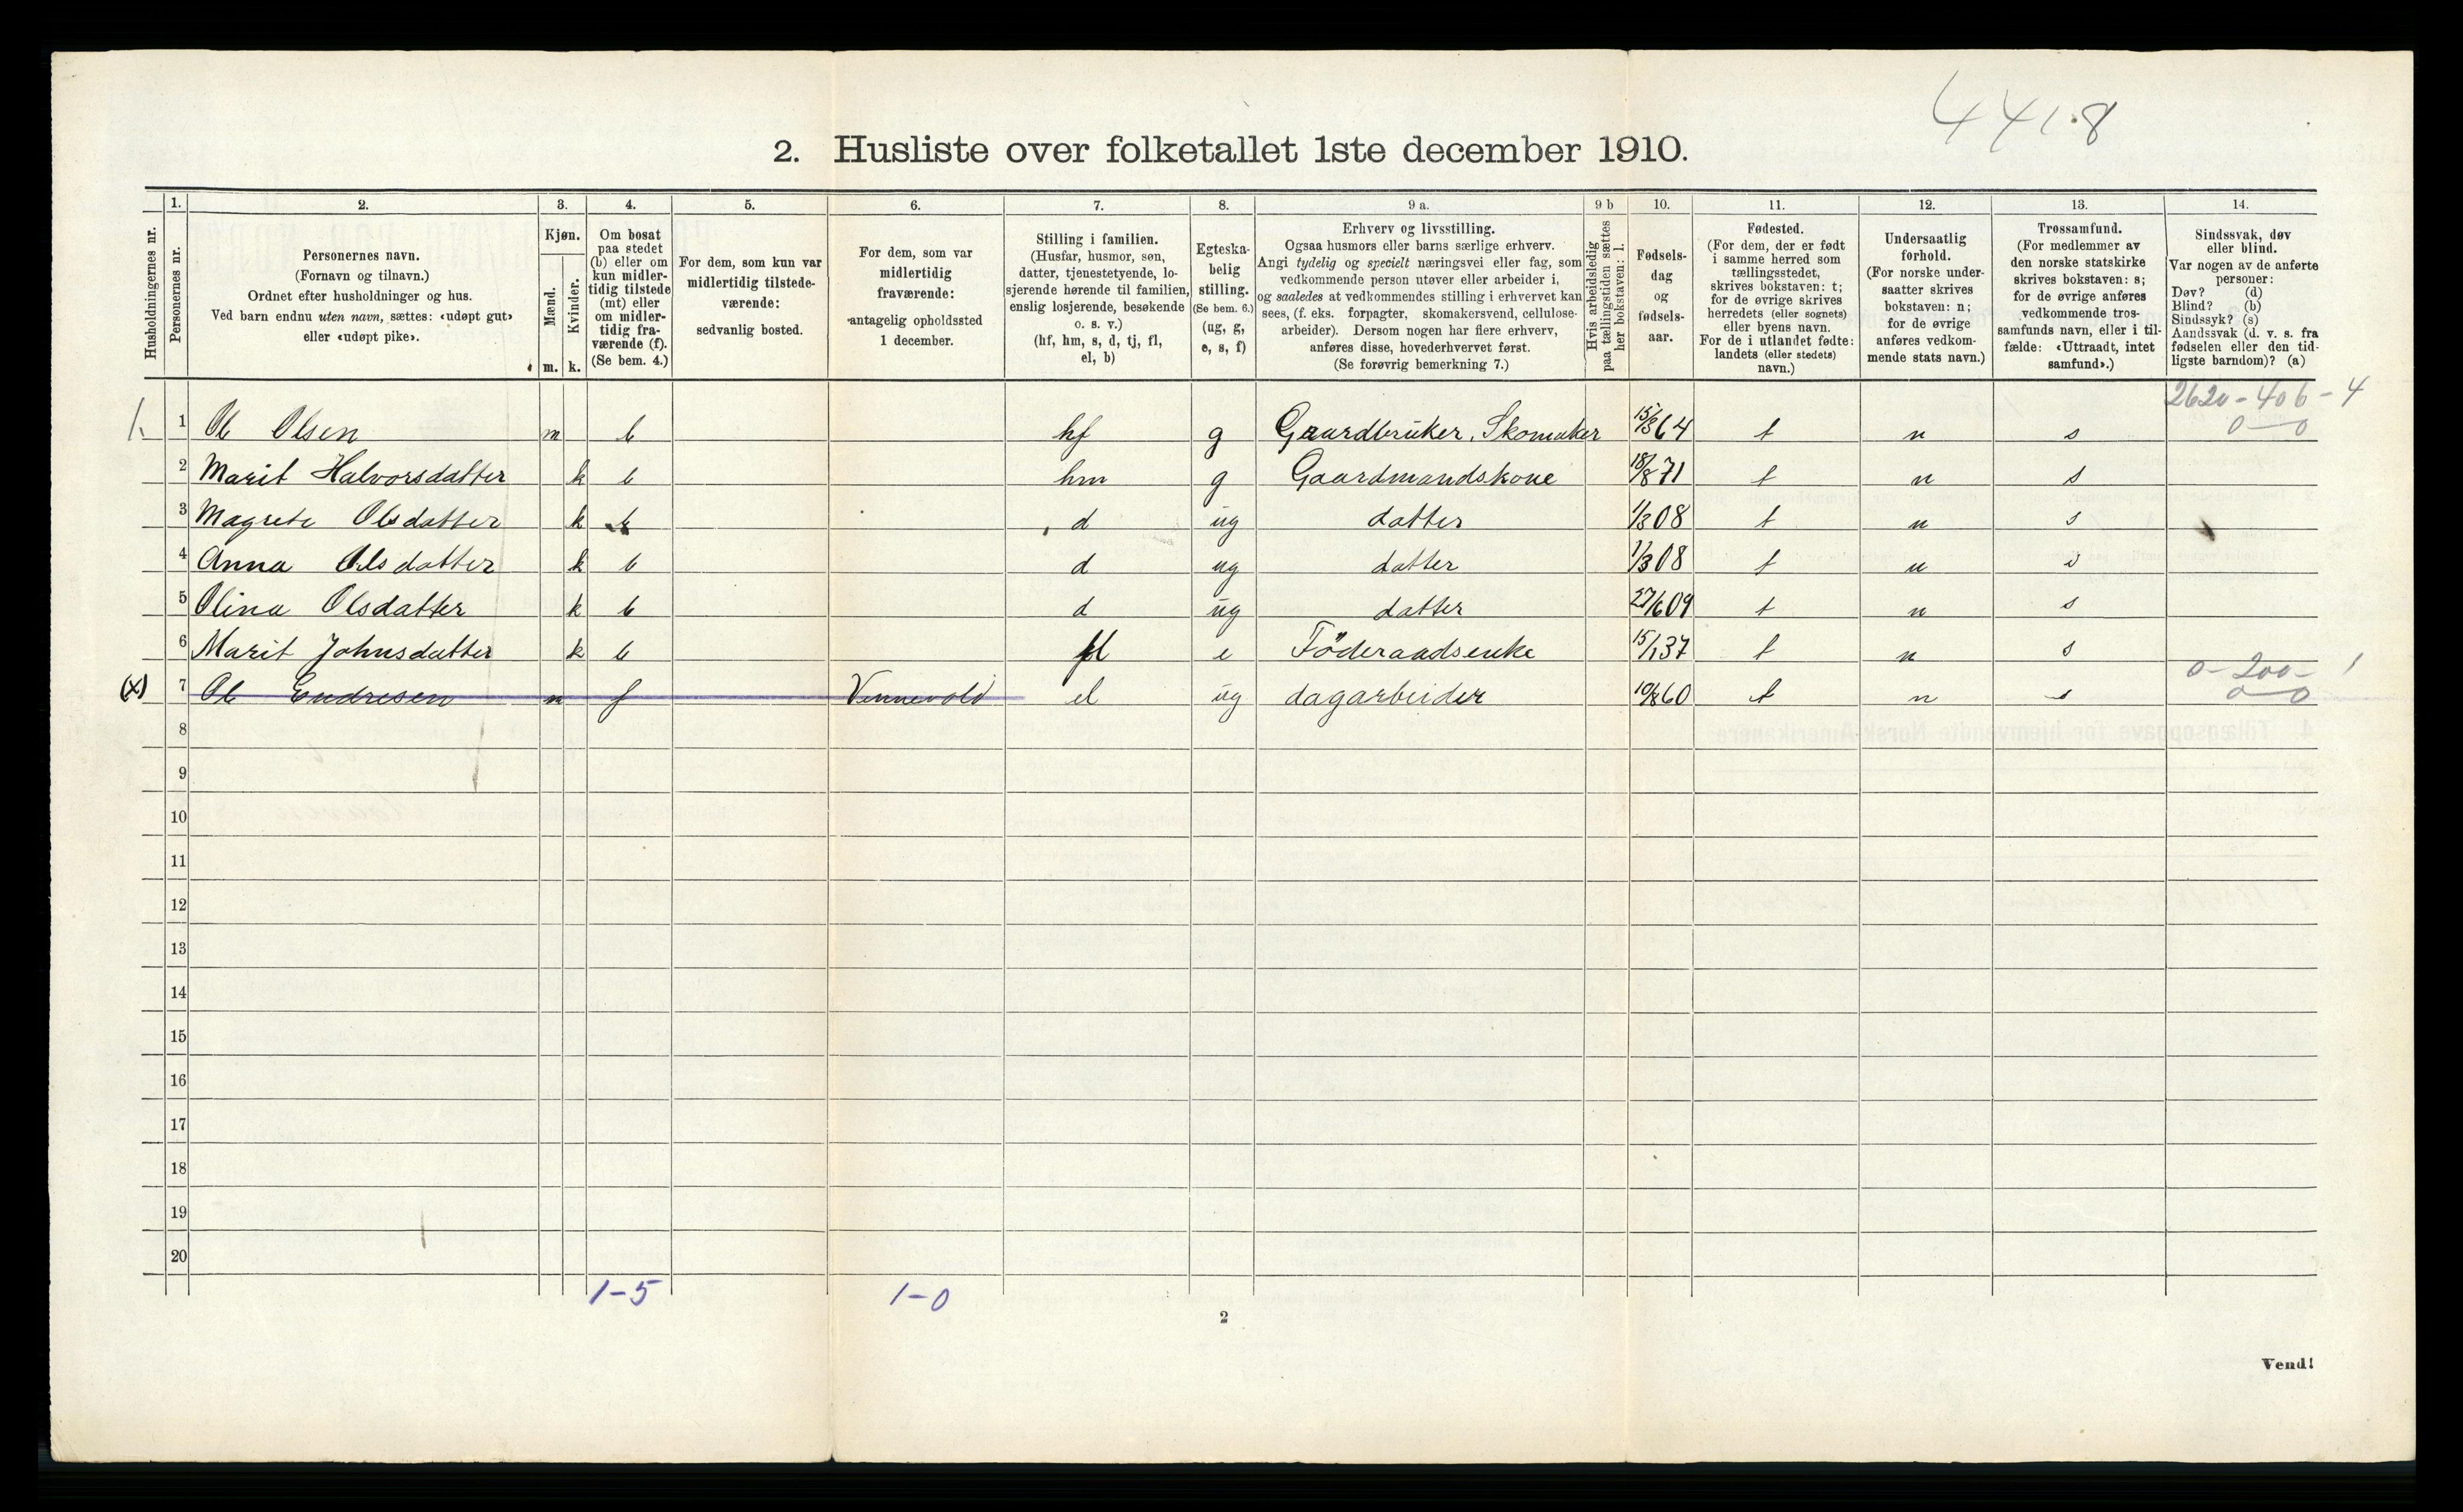 441.8
2. Husliste over folketallet 1ste december 1910.
Husholdningernes nr.
1. Personernes nr.
2. Personernes navn.
(Fornavn og tilnavn.)
Ordnet efter husholdninger og hus.
Ved barn endnu uten navn, sættes: «udøpt gut»
eller «udøpt pike».
3. Kjøn.
Mænd. m.
Kvinder. k.
4. Om bosat
paa stedet
(b) eller om
kun midler-
tidig tilstede
(mt) eller
om midler-
tidig fra-
værende (f).
(Se bem. 4.)
5. For dem, som kun var
midlertidig tilstede-
værende:
sedvanlig bosted.
6. For dem, som var
midlertidig
fraværende:
antagelig opholdssted
1 december.
7. Stilling i familien.
(Husfar, husmor, søn,
datter, tjenestetyende, lo-
sjerende hørende til familien,
enslig losjerende, besøkende
o. s. v.)
(hf, hm, s, d, tj, fl,
el, b)
8. Egteska-
belig
stilling.
(Se bem. 6.)
(ug, g,
e, s, f)
9 a. Erhverv og livsstilling.
Ogsaa husmors eller barns særlige erhverv.
Angi tydelig og specielt næringsvei eller fag, som
vedkommende person utøver eller arbeider i,
og saaledes at vedkommendes stilling i erhvervet kan
sees, (f. eks. forpagter, skomakersvend, cellulose-
arbeider). Dersom nogen har flere erhverv,
anføres disse, hovederhvervet først.
(Se forøvrig bemerkning 7.)
9 b Hvis arbeidsledig
paa tællingstiden sættes
her bokstaven: l.
10. Fødsels-
dag
og
fødsels-
aar.
11. Fødested.
(For dem, der er født
i samme herred som
tællingsstedet,
skrives bokstaven: t;
for de øvrige skrives
herredets (eller sognets)
eller byens navn.
For de i utlandet fødte:
landets (eller stedets)
navn.)
12. Undersaatlig
forhold.
(For norske under-
saatter skrives
bokstaven: n;
for de øvrige
anføres vedkom-
mende stats navn.)
13. Trossamfund.
(For medlemmer av
den norske statskirke
skrives bokstaven: s;
for de øvrige anføres
vedkommende tros-
samfunds navn, eller i til-
fælde: «Uttraadt, intet
samfund».)
14. Sindssvak, døv
eller blind.
Var nogen av de anførte
personer:
Døv? (d)
Blind? (b)
Sindssyk? (s)
Aandssvak (d. v. s. fra
fødselen eller den tid-
ligste barndom)? (a)
2620 - 406 - 4
1. 1 Ole Olsen m b hf g Gaardbruker, Skomaker 15/3 64 t n s 0 — 0
2 Marit Halvorsdatter k b hm g Gaardmandskone 18/8 71 t n s
3 Magrete Olsdatter k b d ug datter 1/3 08 t n s
4 Anna Olsdatter k b d ug datter 1/3 08 t n s
5 Olina Olsdatter k b d ug datter 27/6 09 t n s
6 Marit Johnsdatter k b fl e Föderaadsenke 15/1 37 t n s
0 - 200 - 1
(x) 7 Ole Endresen m f Vennevold el ug dagarbeider 10/8 60 t n s 0 — 0
8
9
10
11
12
13
14
15
16
17
18
19
20
1-5 1-0
2
Vend!